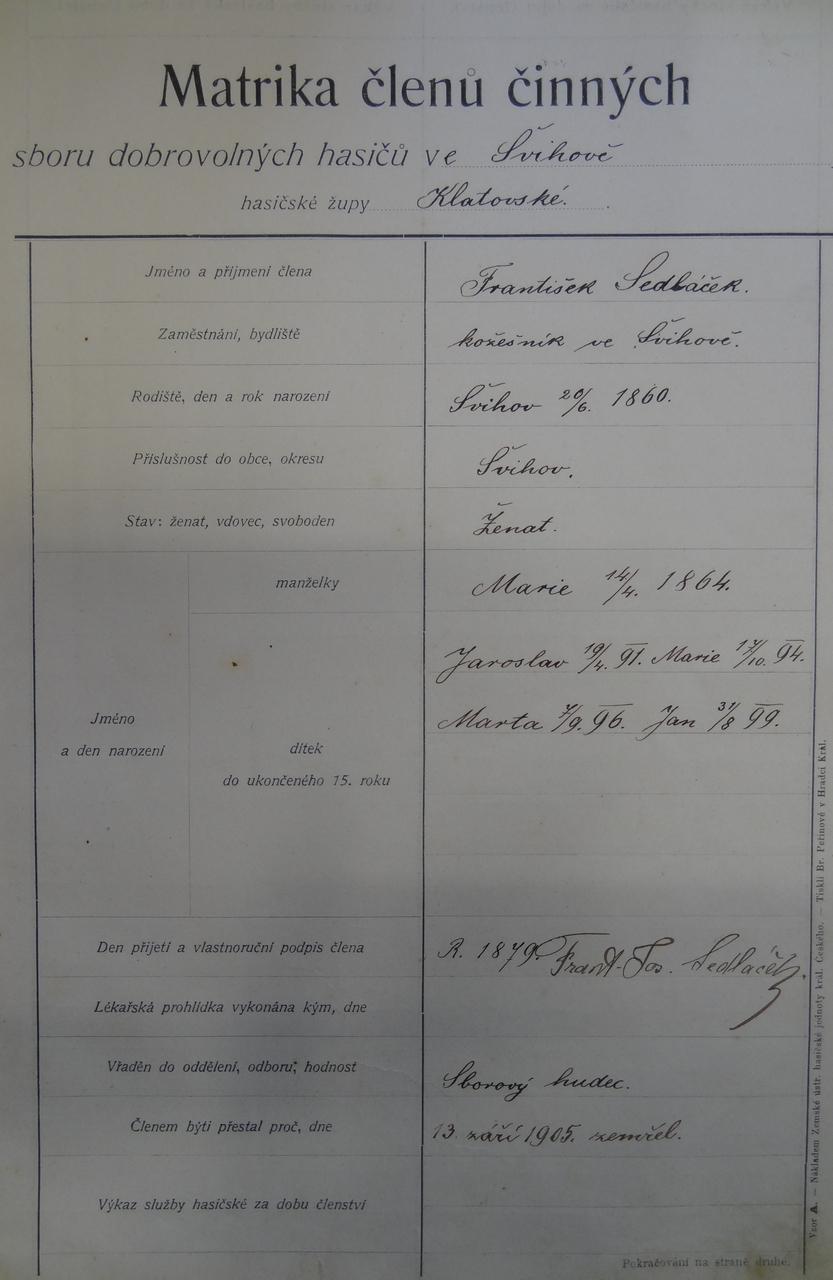 Matrika členů činných
sboru dobrovolných hasičů ve Švihově
hasičské župy Klatovské.
Jméno a příjmení člena František Sedláček.
Zaměstnání, bydliště kožešník ve Švihově.
Rodiště, den a rok narození Švihov 20/6. 1860.
Příslušnost do obce, okresu Švihov.
Stav: ženat, vdovec, svoboden Ženat.
manželky Marie 14/4. 1864.
Jaroslav 19/4. 91. Marie 17/10. 94.
Jméno
a den narození
Marta 7/9. 96. Jan 31/8 99.
dítek
do ukončeného 15. roku
Den přijetí a vlastnoruční podpis člena R. 1879 Frant. Jos. Sedláček
Lékařská prohlídka vykonána kým, dne
Vřaděn do oddělení, odboru, hodnost Sborový hudec.
Členem býti přestal proč, dne 13. září 1905. zemřel.
Výkaz služby hasičské za dobu členství
Pokračování na straně druhé.
Vzor A. — Nákladem Zemské ústř. hasičské jednoty král. Českého. — Tiskli Br. Peřinové v Hradci Král.